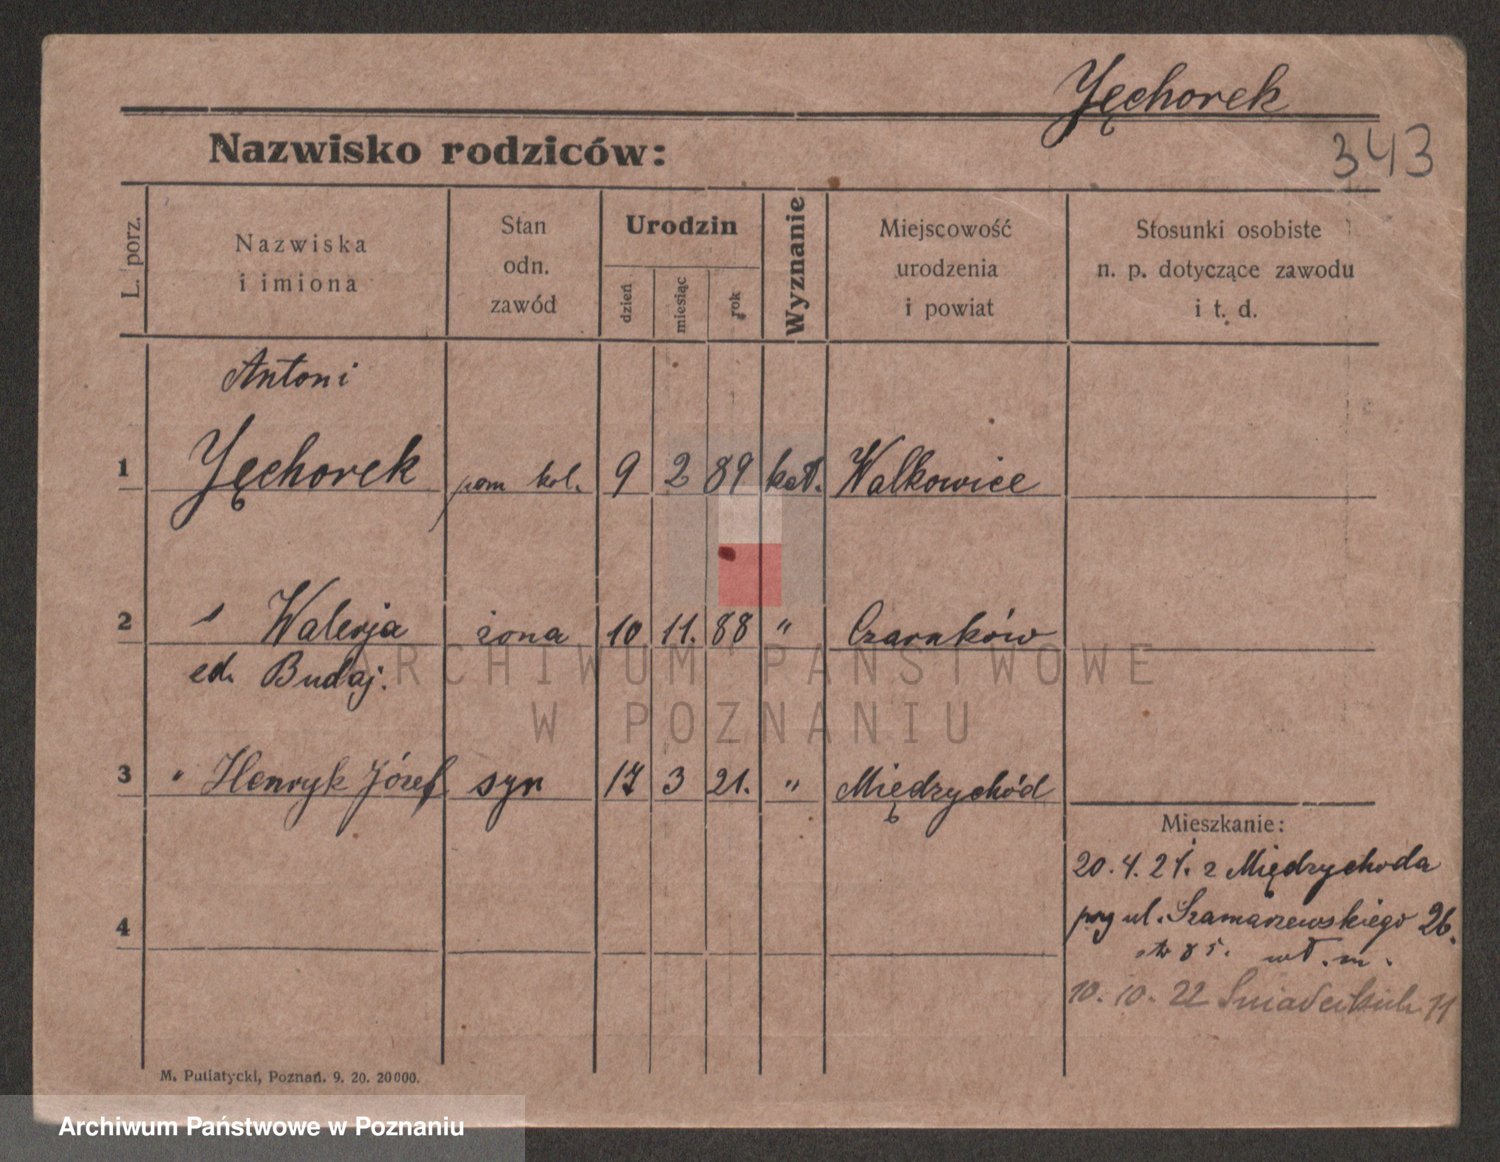 Jęchorek
343
Nazwisko rodziców:
L. porz.
Nazwiska
i imiona
Stan
odn.
zawód
Urodzin
dzień
miesiąc
rok
Wyznanie
Miejscowość
urodzenia
i powiat
Stosunki osobiste
n. p. dotyczące zawodu
i t. d.
Antoni
1 Jęchorek pom kol. 9 2 89 kat. Walkowice
2 " Walerja żona 10 11. 88 " Czarnków
ed. Budaj.
3 " Henryk Józef syn 17 3 21. " Międzychód
Mieszkanie:
20.4.21. z Międzychoda
przy ul. Szamarzewskiego 26.
wł. m.
4
10.10.22 Śniadeckich 11
M. Putiatycki, Poznań. 9. 20. 20000.
ARCHIWUM PAŃSTWOWE
W POZNANIU
Archiwum Państwowe w Poznaniu